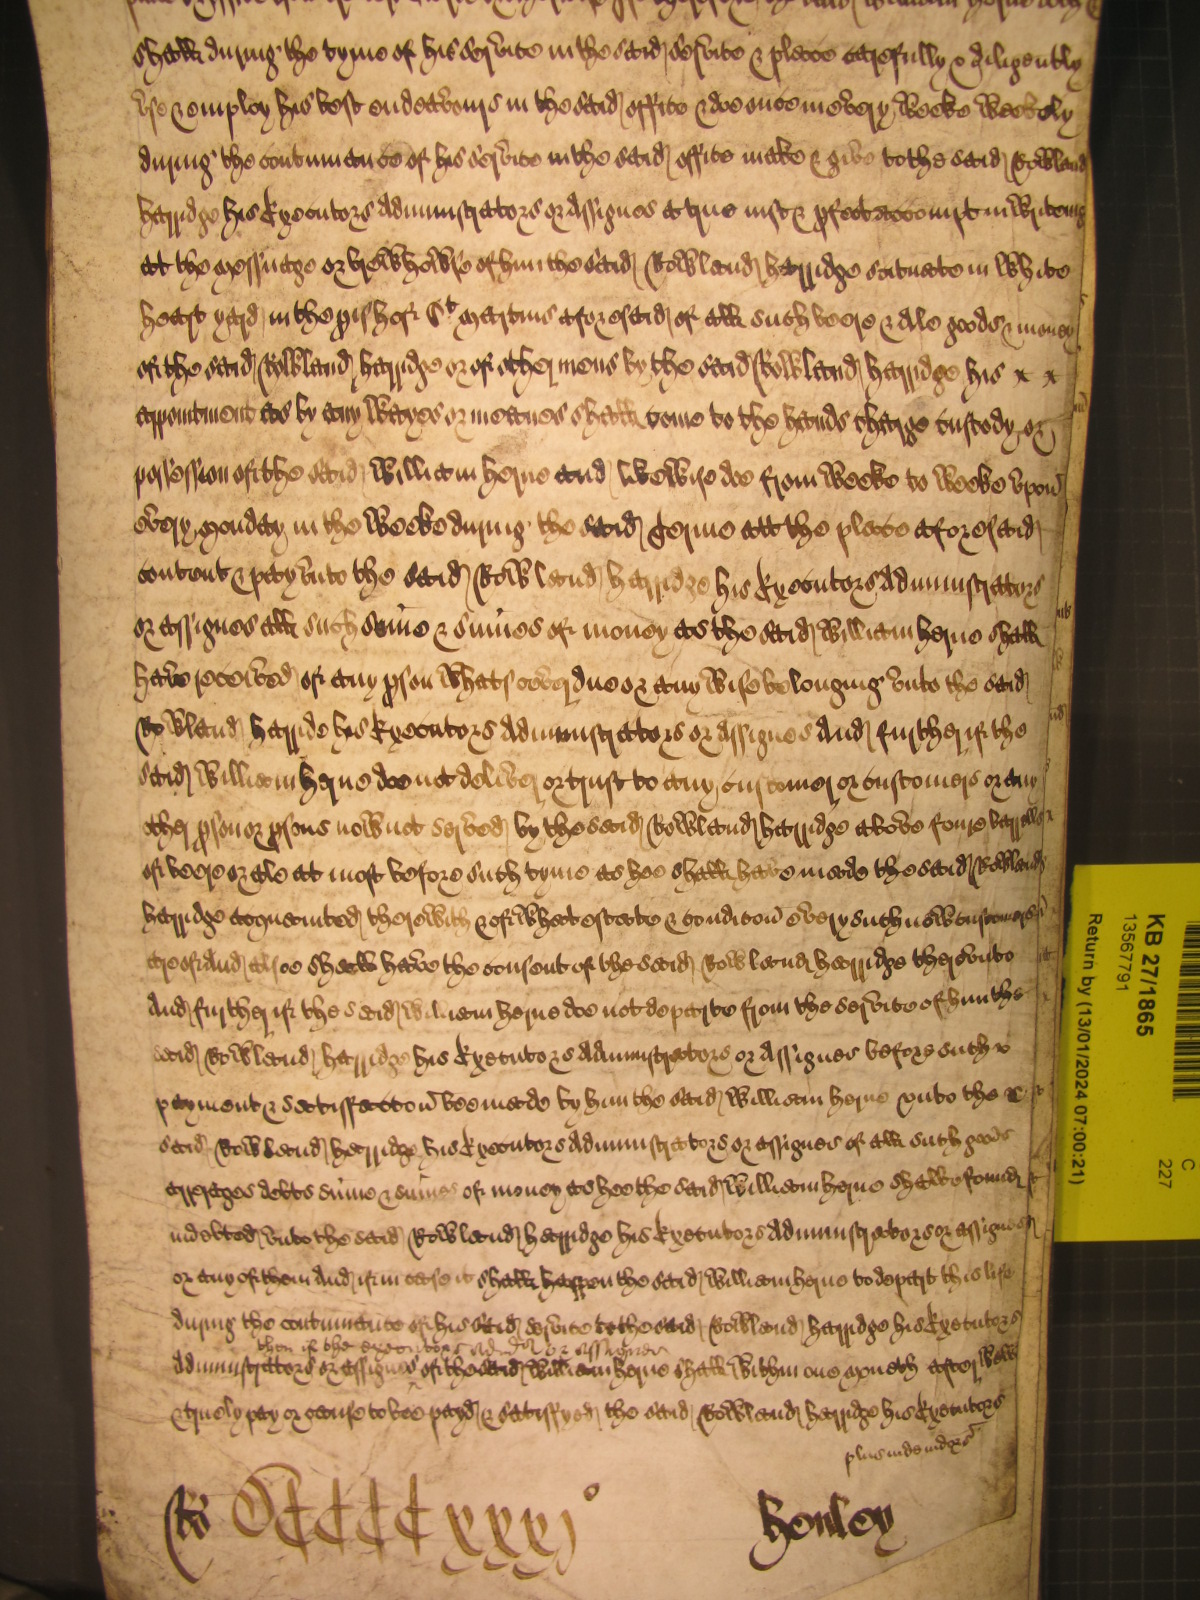 shall during the tyme of his service in the said service & place carefully & diligently
vse & employ his best endeavours in the said office & doe once in every weeke weekely
during the contynuance of his service in the said office make & give to the said Rowland
Harridge his Executors Administrators or Assignes a true iust & pfect accompt in writeing
att the messuage or brewhowse of him the said Rowland Harridge scituate in White
heart yard in the pish of St Martins aforesaid of all such beere & ale goods & money
of the said Rowland Harridge or of other mens by the said Rowland Harridge his x x
appointment as by any wayes or meanes shall come to the hands charge custody or
possession of the said William Herne and likewise doe from weeke to weeke vpon
every monday in the weeke during the said terme att the place aforesaid
content & pay vnto the said Rowland Harridge his Executors Administrators
or assignes all such sume & sumes of money as the said William Herne shall
have received of any pson whatsoever due or any wise belonging vnto the said
Rowland Harride his Executors Administrators or Assignes And further if the
said William Herne doe not deliver or trust to any customer or customers or any
other pson or psons now not served by the said Rowland Harridge above foure barrells
of beere or ale at most before such tyme as hee shall have made the said Rowland
Harridge acquainted therewith & of what estate & condicon every such new customers
are of And alsoe shall have the consent of the said Rowland Harridge therevnto
And further if the said William Herne doe not departe from the service of him the
said Rowland Harridge his Executors Administrators or Assignes before such
payment & satisfaccon bee made by him the said William Herne vnto the
said Rowland Harridge his Executors Administrators or assignes of all such goods
arreages debts sume & sumes of money as hee the said William Herne shalbe found
indebted vnto the said Rowland Harridge his Executors Administrators or assignes
or any of them And if in case it shall happen the said William Herne to depart this life
during the contynuance of his said service to the said Rowland Harridge his Executors
then if the executors admors or assignes
Administrators or assignes of the said William Herne shall within one moneth after well
& truely pay or cause to bee payd & satisfyed the said Rowland Harridge his Executors
plus inde in dors
Ro CCCCCxxxj o
Henley
KB 27/1865
13567791
Return by (13/01/2024 07:00:21)
C
227